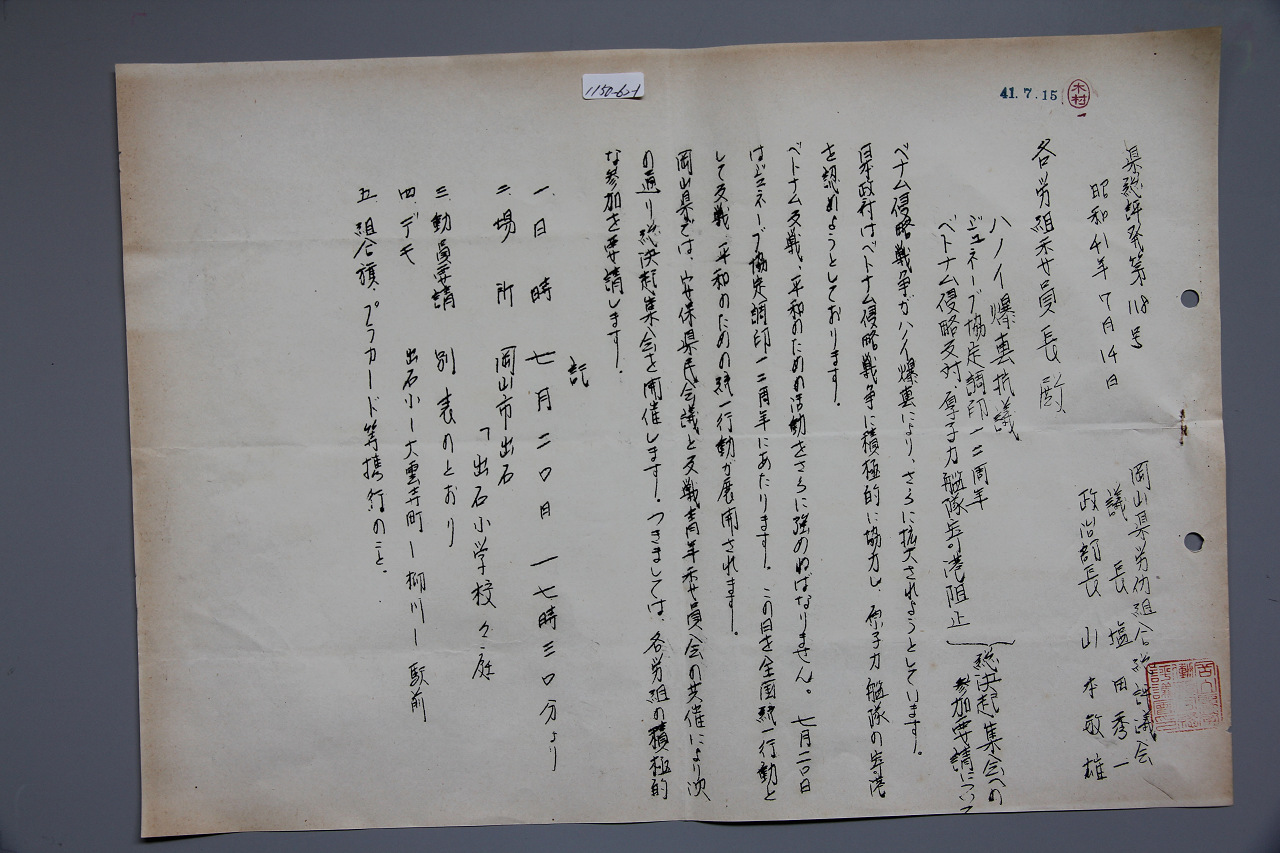 1150-6-1
41.7.15
木村
県総評発第118号
昭和41年7月14日
岡山県労仂組合総評議会
議長 塩田秀一
政治部長 山本敏雄
各労組委員長殿
ハノイ爆撃抗議
ジュネーブ協定調印一二周年
ベトナム侵略反対原子力艦隊寄港阻止
総決起集会への
参加要請について
ベトナム侵略戦争がハノイ爆撃により、さらに拡大されようとしています。
日本政府はベトナム侵略戦争に積極的に協力し、原子力艦隊の寄港
を認めようとしております。
ベトナム反戦、平和のための活動をさらに強めねばなりません。 七月二〇日
はジュネーブ協定調印一二周年にあたります。この日を全国統一行動と
して反戦、平和のための統一行動が展開されます。
岡山県では、安保県民会議と反戦青年委員会の共催により次
の通り総決起集会を開催します。つきましては、各労組の積極的
な参加を要請します。
記
一、日 時 七月二〇日 一七時三〇分より
二、場 所 岡山市出石
「出石小学校々庭
三、動員要請 別表のとおり
四、デモ 出石小ー大雲寺町ー柳川ー駅前
五、組合旗、プラカード等携行のこと。